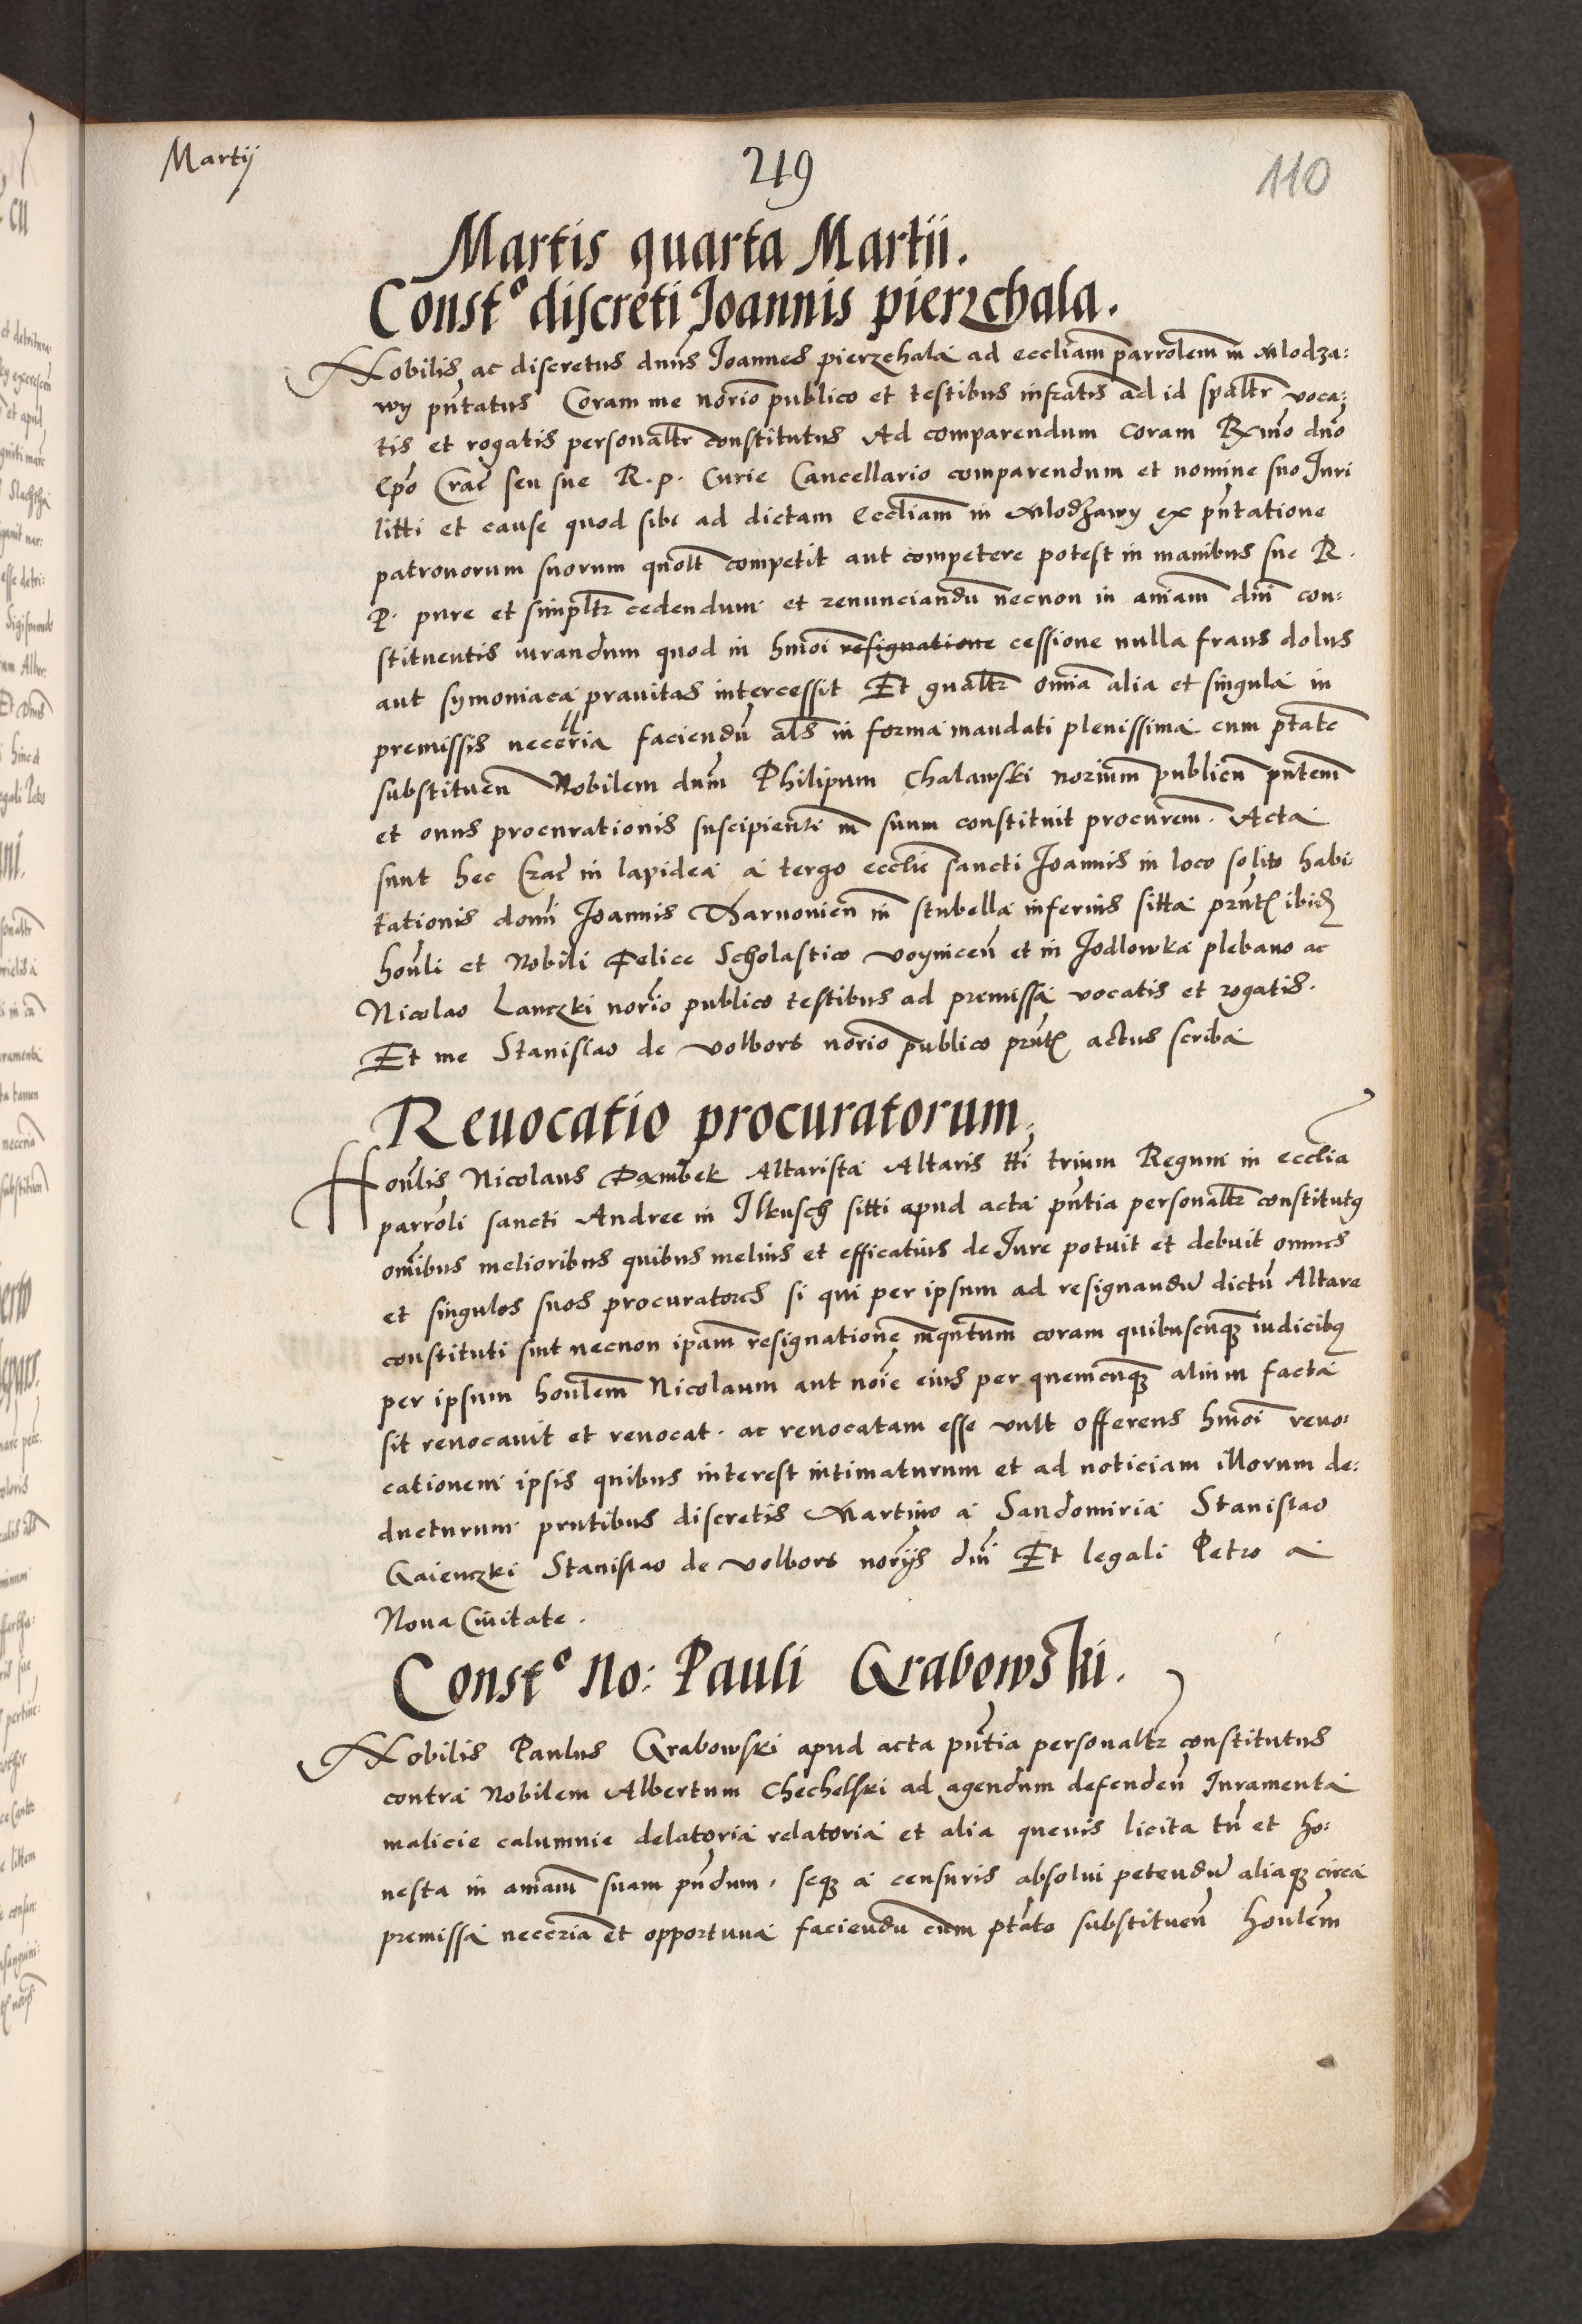 Martij
219
110
Martis quarta Martii.
Const° discreti Joannis pierzchala.
Nobilis ac discretus dnus Joannes pierzchala ad eccliam parrolem in Mlodza:
wy pntatus Coram me norio publico et testibus infratis ad id spaltr voca:
tis et rogatis personaltr constitutus Ad comparendum coram Rxmo dno
Epo Crac seu sue R. p. Curie Cancellario comparendum et nomine suo Juri
litti et cause quod sibi ad dictam Eccliam in Mlodzawy ex pntatione
patronorum suorum quolt competit aut competere potest in manibus sue R.
P. pure et simpltr cedendum et renunciandu necnon in aniam dni con:
stituentis iurandum quod in hmoi resignatione cessione nulla fraus dolus
aut symoniaca pravitas intercessit Et gnaltr omia alia et singula in
premissis necessria faciendu als in forma mandati plenissima cum ptate
substituen Nobilem dnum Philipum Chalawski norium publicu pntem
et onus procurationis suscipientem in suum constituit procurem. Acta
sunt hec Crac in lapidea a tergo ecclie sancti Joannis in loco solito habi:
tationis domi Joannis Tharnouien in stubella inferius sitta prnt ibid
honli et Nobili Felice Scholastico voynicen et in Jodlowka plebano ac
Nicolao Lanczki norio publico testibus ad premissa vocatis et rogatis.
Et me Stanislao de volbors norio publico prnt actus scriba
Reuocatio procuratorum.
Honlis Nicolaus Altarista Altaris tti trium Regum in ecclia
parroli sancti Andree in Ilkusch sitti apud acta pntia personaltr constitutus
omibus melioribus quibus melius et efficatius de Jure potuit et debuit omnes
et singulos suos procuratores si qui per ipsum ad resignandu dictu Altare
constituti sint necnon ipam resignatione inqntum coram quibuscunque iudicibus
per ipsum honlem Nicolaum aut noie eius per quemcunque alium facta
sit reuocauit et reuocat. ac reuocatam esse vult offerens hmoi reuo:
cationem ipsis quibus interest intimaturum et ad noticiam illorum de:
ducturum prntibus discretis Martino a Sandomiria Stanislao
Gaienczki Stanislao de volbors norijs dni Et legali Petro a
Noua Ciuitate.
Const° No: Pauli Grabowski.
Nobilis Paulus Grabowski apud acta pntia personaltr constitutus
contra Nobilem Albertum Chechelski ad agendum defenden Juramenta
malicie calumnie delatoria relatoria et alia queuis licita tn et ho:
nesta in aniam suam pndum, seque a censuris absolui petendu aliaque circa
premissa necceria et opportuna faciendu cum ptate substituen honlem